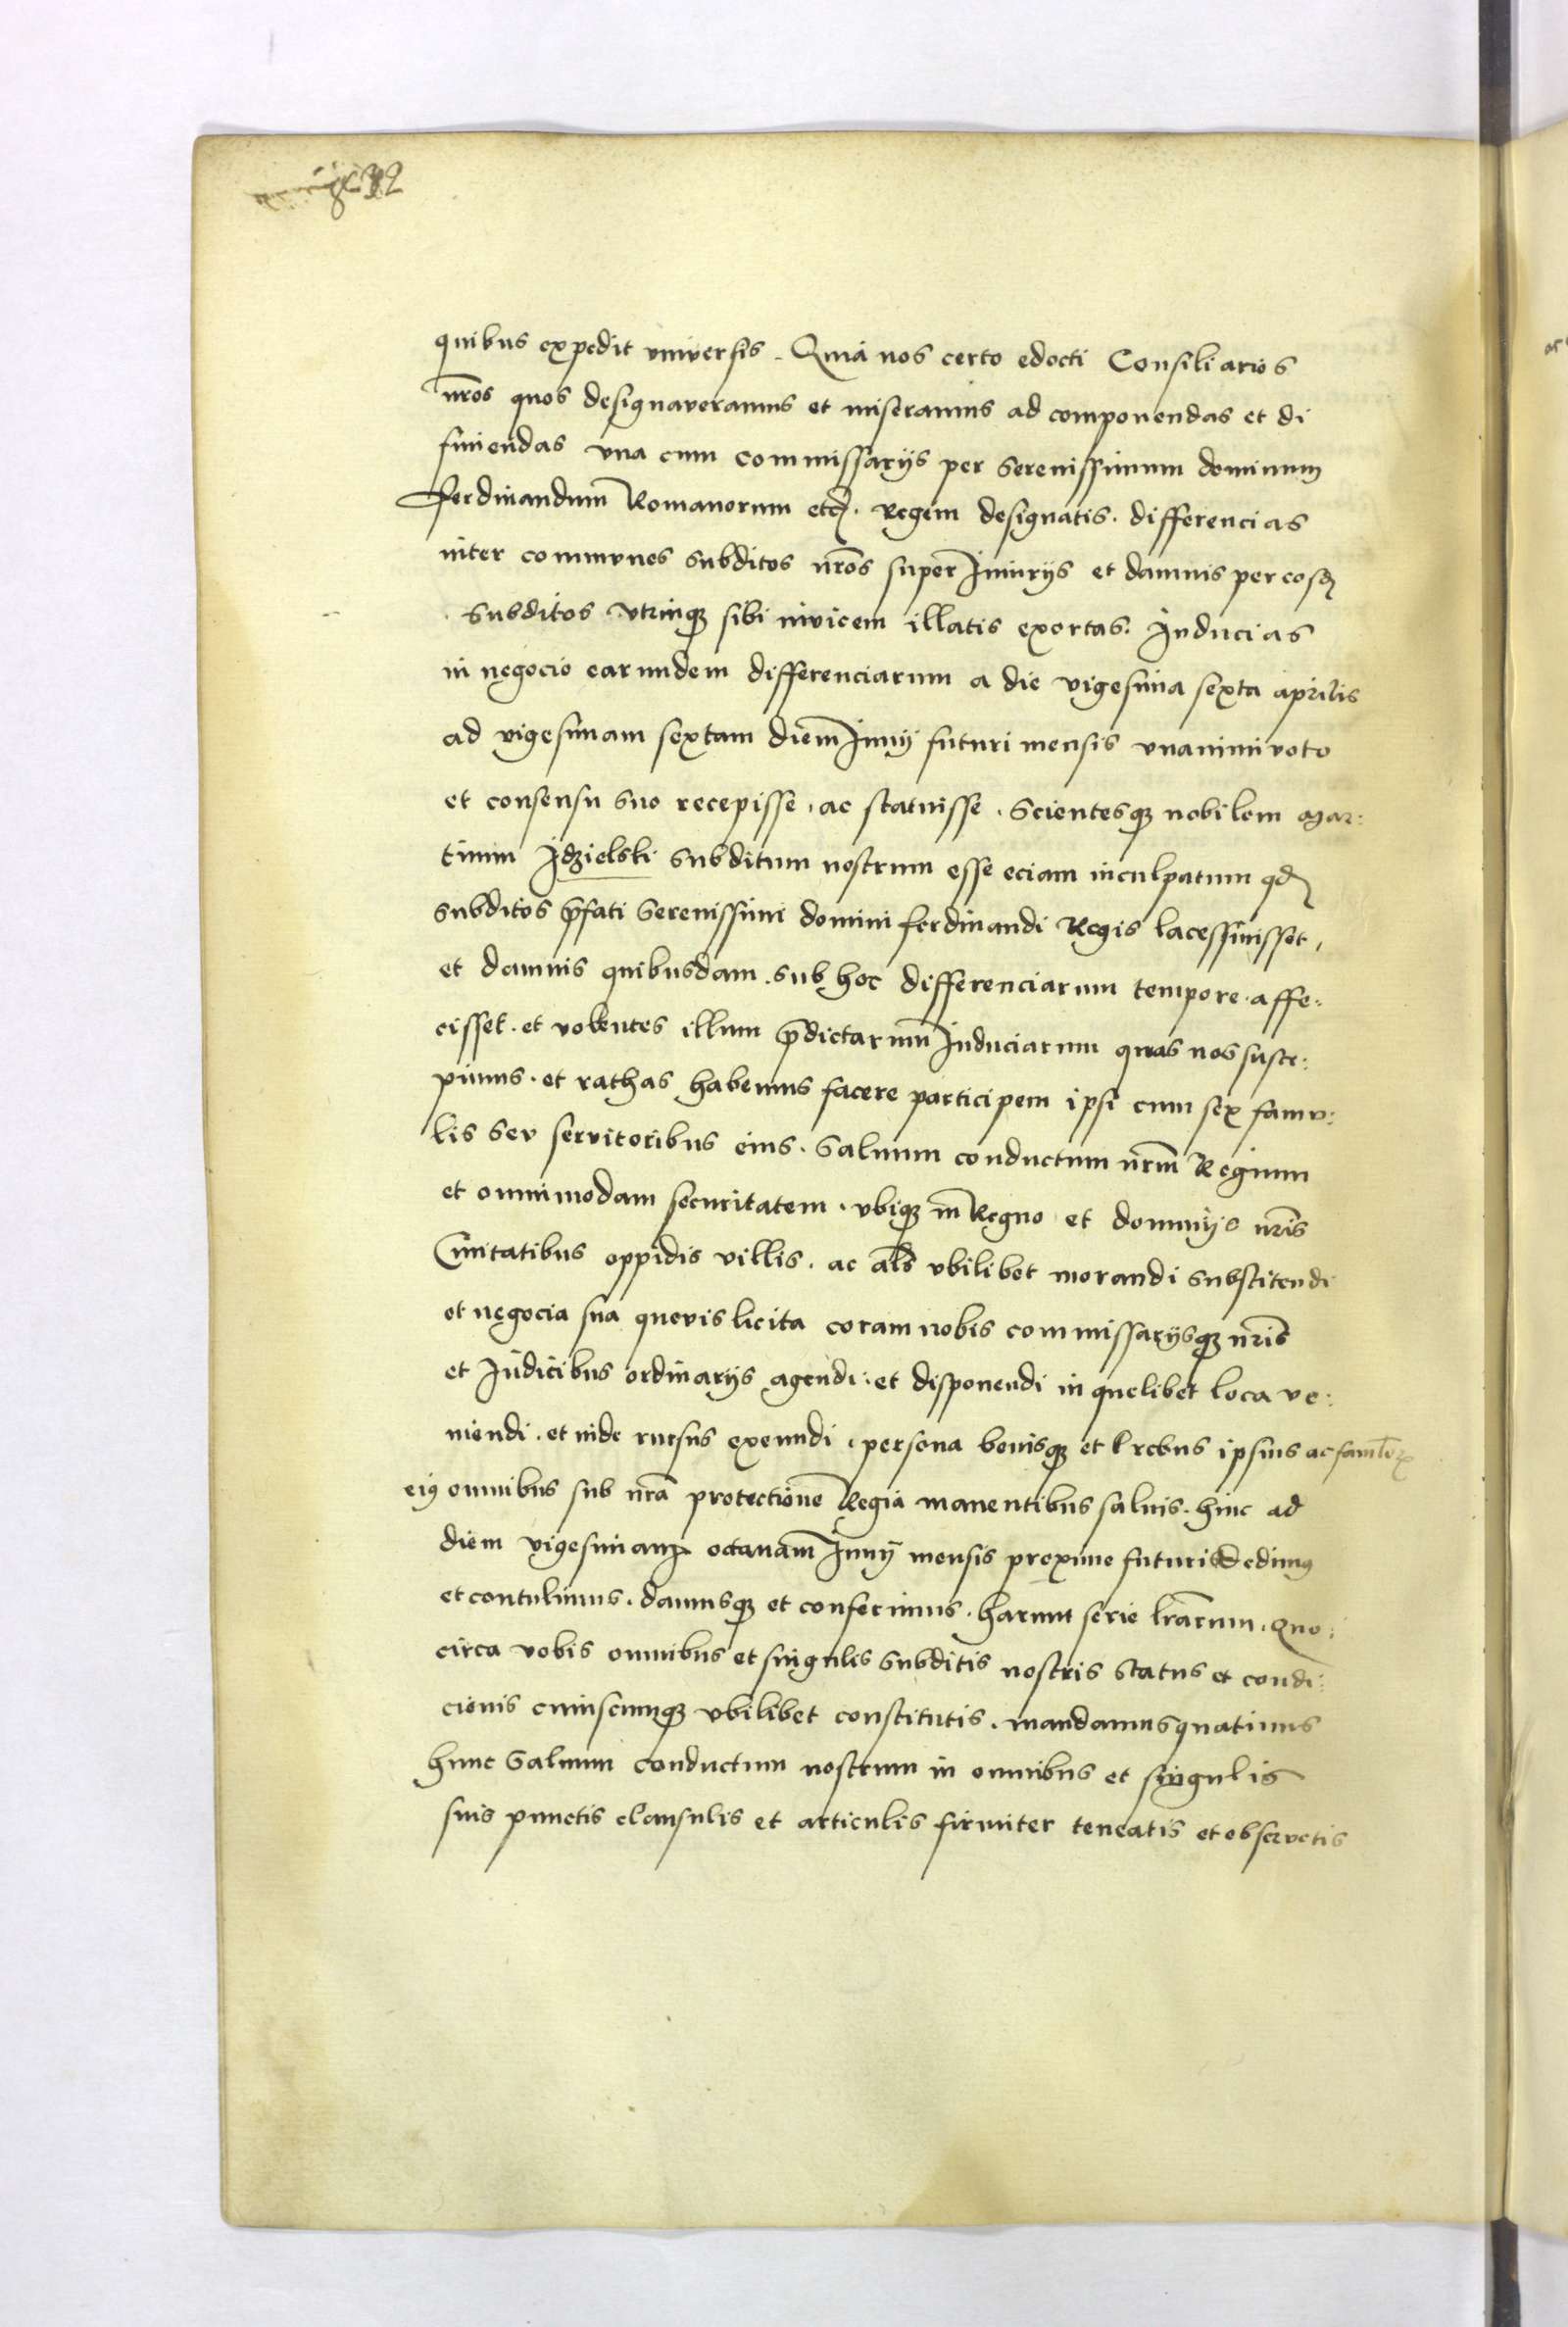 quibus expedit vniversis. Quia nos certo edocti Consiliarios
nr̃os quos designaveramus et miseramus ad componendas et di
finiendas vna cum commissarijs per Serenissimum dominum
Ferdinandum Romanorum etc. Regem designatis. differencias
inter communes subditos nr̃os super Iniurijs et damnis per eosd
subditos vtrinqꝫ sibi invicem illatis exortas. Inducias
in negocio earundem differenciarum a die vigesima sexta aprilis
ad vigesimam sextam diem Iunij futuri mensis vnanimi voto
et consensu suo recepisse. ac statuisse. Scientesqꝫ nobilem Mar:
tinum Idzielski subditum nostrum esse eciam inculpatum qd
subditos p̃fati Serenissimi domini ferdinandi Regis lacessiuisset,
et damnis quibusdam. sub hoc differenciarum tempore. affe:
cisset. et volentes illum p̃dictarum Induciarum quas nos susce:
pimus. et rathas habemus facere participem ipsi cum sex famu:
lis Seu servitoribus eius. Saluum conductum nr̃m Regium
et omnimodam securitatem. vbiqꝫ in Regno et dominijs nr̃is
Ciuitatibus oppidis villis. ac al̃s vbilibet morandi subsistendi
et negocia sua quevis licita coram nobis commissarijsqꝫ nr̃is
et Iudicibus ordinarijs agendi. et disponendi in quelibet loca ve:
niendi. et inde rursus exeundi. persona bonisqꝫ et rebus ipsius ac faml̃orꝝ
eiꝰ omnibus sub nr̃a protectione Regia manentibus saluis. hinc ad
diem vigesimam octauam Iunij mensis proxime futuri dedimꝰ
et contulimus. damusqꝫ et conferimus. harum serie lr̃arum. Quo:
circa vobis omnibus et singulis subditis nostris Status et condi:
cionis cuiuscunqꝫ vbilibet constitutis. mandamus quatinus
hunc Saluum conductum nostrum in omnibus et singulis
suis punctis clausulis et articulis firmiter teneatis et observetis